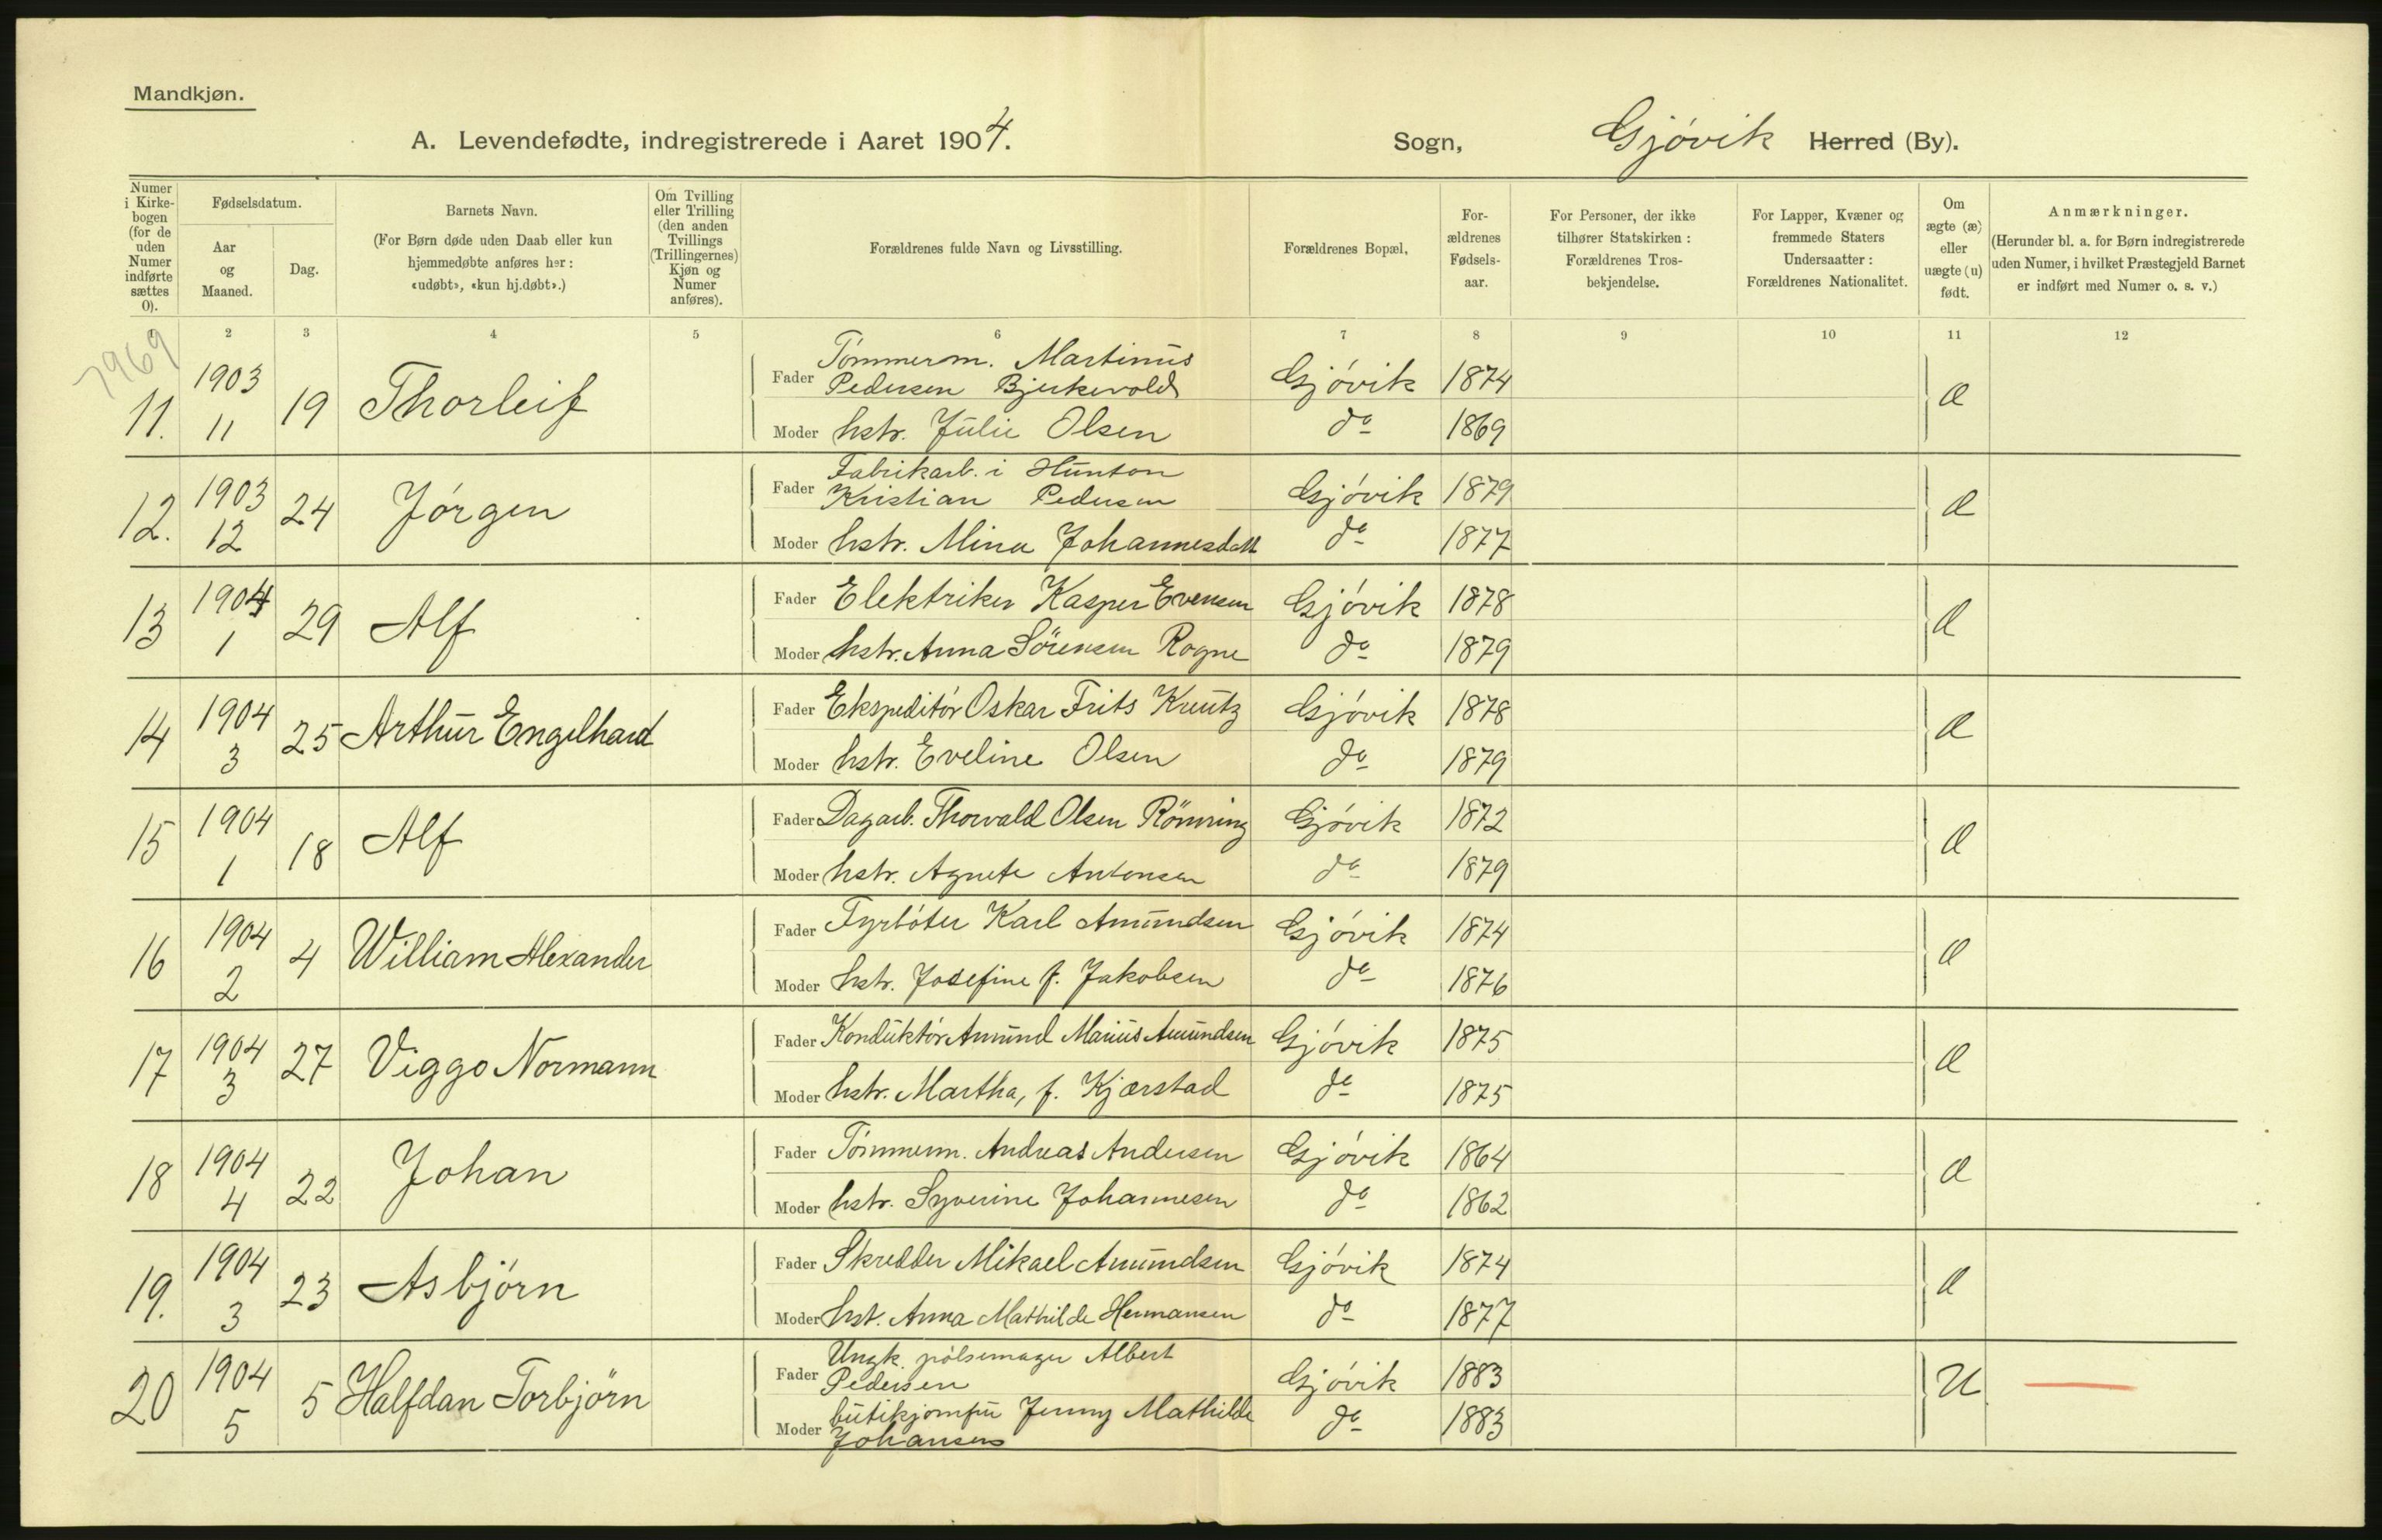 Mandkjøn.
A. Levendefødte, indregistrerede i Aaret 1904. Sogn, Gjövik Herred (By).
Numer i Kirkebogen (for de uden Numer indførte sættes 0).
Fødselsdatum.
Aar og Maaned.
Dag.
Barnets Navn.
(For Børn døde uden Daab eller kun hjemmedøbte anføres her: «udøbt», «kun hj.døbt».)
Om Tvilling eller Trilling (den anden Tvillings (Trillingernes) Kjøn og Numer anføres).
Forældrenes fulde Navn og Livsstilling.
Forældrenes Bopæl,
Forældrenes Fødselsaar.
For Personer, der ikke tilhører Statskirken: Forældrenes Trosbekjendelse.
For Lapper, Kvæner og fremmede Staters Undersaatter: Forældrenes Nationalitet.
Om ægte (æ) eller uægte (u) født.
Anmærkninger.
(Herunder bl. a. for Børn indregistrerede uden Numer, i hvilket Præstegjeld Barnet er indført med Numer o. s. v.)
1 2 3 4 5 6 7 8 9 10 11 12
7969
11. 1903 11 19 Thorleif
Fader Tömmerm. Martinus Pedersen Bjerkevold Gjövik 1874 æ
Moder hstr. Julie Olsen do 1869
12. 1903 12 24 Jörgen
Fader Fabrikarb. i Hunton Kristian Pedersen Gjövik 1879 æ
Moder hstr. Mina Johannesdatt do 1877
13 1904 1 29 Alf
Fader Elektriker Kasper Evensen Gjövik 1878 æ
Moder hstr. Anna Sörensen Rogne do 1879
14 1904 3 25 Arthur Engelhard
Fader Ekspeditör Oskar Frits Kreutz Gjövik 1878 æ
Moder hstr. Eveline Olsen do 1879
15 1904 1 18 Alf
Fader Dagarb. Thorvald Olsen Gjövik 1872 æ
Moder hstr. Agnete Antonsen do 1879
16 1904 2 4 William Alexander
Fader Fyrböter Karl Amundsen Gjövik 1874 æ
Moder hstr. Josefine f. Jakobsen do 1876
17 1904 3 27 Viggo Normann
Fader Konduktör Amund Marius Amundsen Gjövik 1875 æ
Moder hstr. Martha, f. Kjærstad do 1875
18 1904 4 22 Johan
Fader Tömmerm. Andreas Andersen Gjövik 1864 æ
Moder hstr. Syverine Johannesen do 1862
19. 1904 3 23 Asbjörn
Fader Skredder Mikael Amundsen Gjövik 1874 æ
Moder hst. Anna Mathilde Hermansen do 1877
20 1904 5 5 Halfdan Torbjörn
Fader Ungk. pölsemager Albert Pedersen Gjövik 1883 u
Moder butikjomfru Jenny Mathilde Johansen do 1883